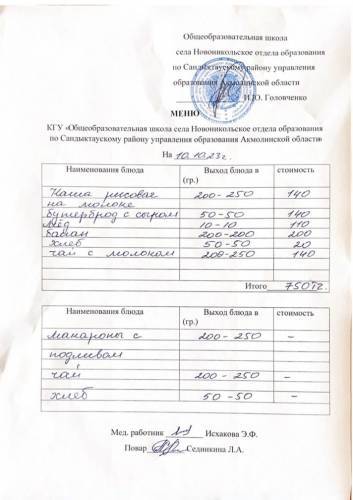 Общеобразовательная школа
села Новоникольское отдела образования
по Сандыктаускому району управления
образования Акмолинской области
И.Ю. Головченко
МЕНЮ
КГУ «Общеобразовательная школа села Новоникольское отдела образования
по Сандыктаускому району управления образования Акмолинской области»
На 10.10.23г.
Наименования блюда Выход блюда в (гр.) стоимость
Каша рисовая 200-250 140
на молоке
бутерброд с сыром 50-50 140
мёд 10-10 110
банан 200-200 200
хлеб 50-50 20
чай с молоком 200-250 140
Итого 750тг.
Наименования блюда Выход блюда в (гр.) стоимость
макароны с 200-250 –
подливом
чай 200-250 –
хлеб 50-50 –
Мед. работник Исхакова Э.Ф.
Повар Сединкина Л.А.